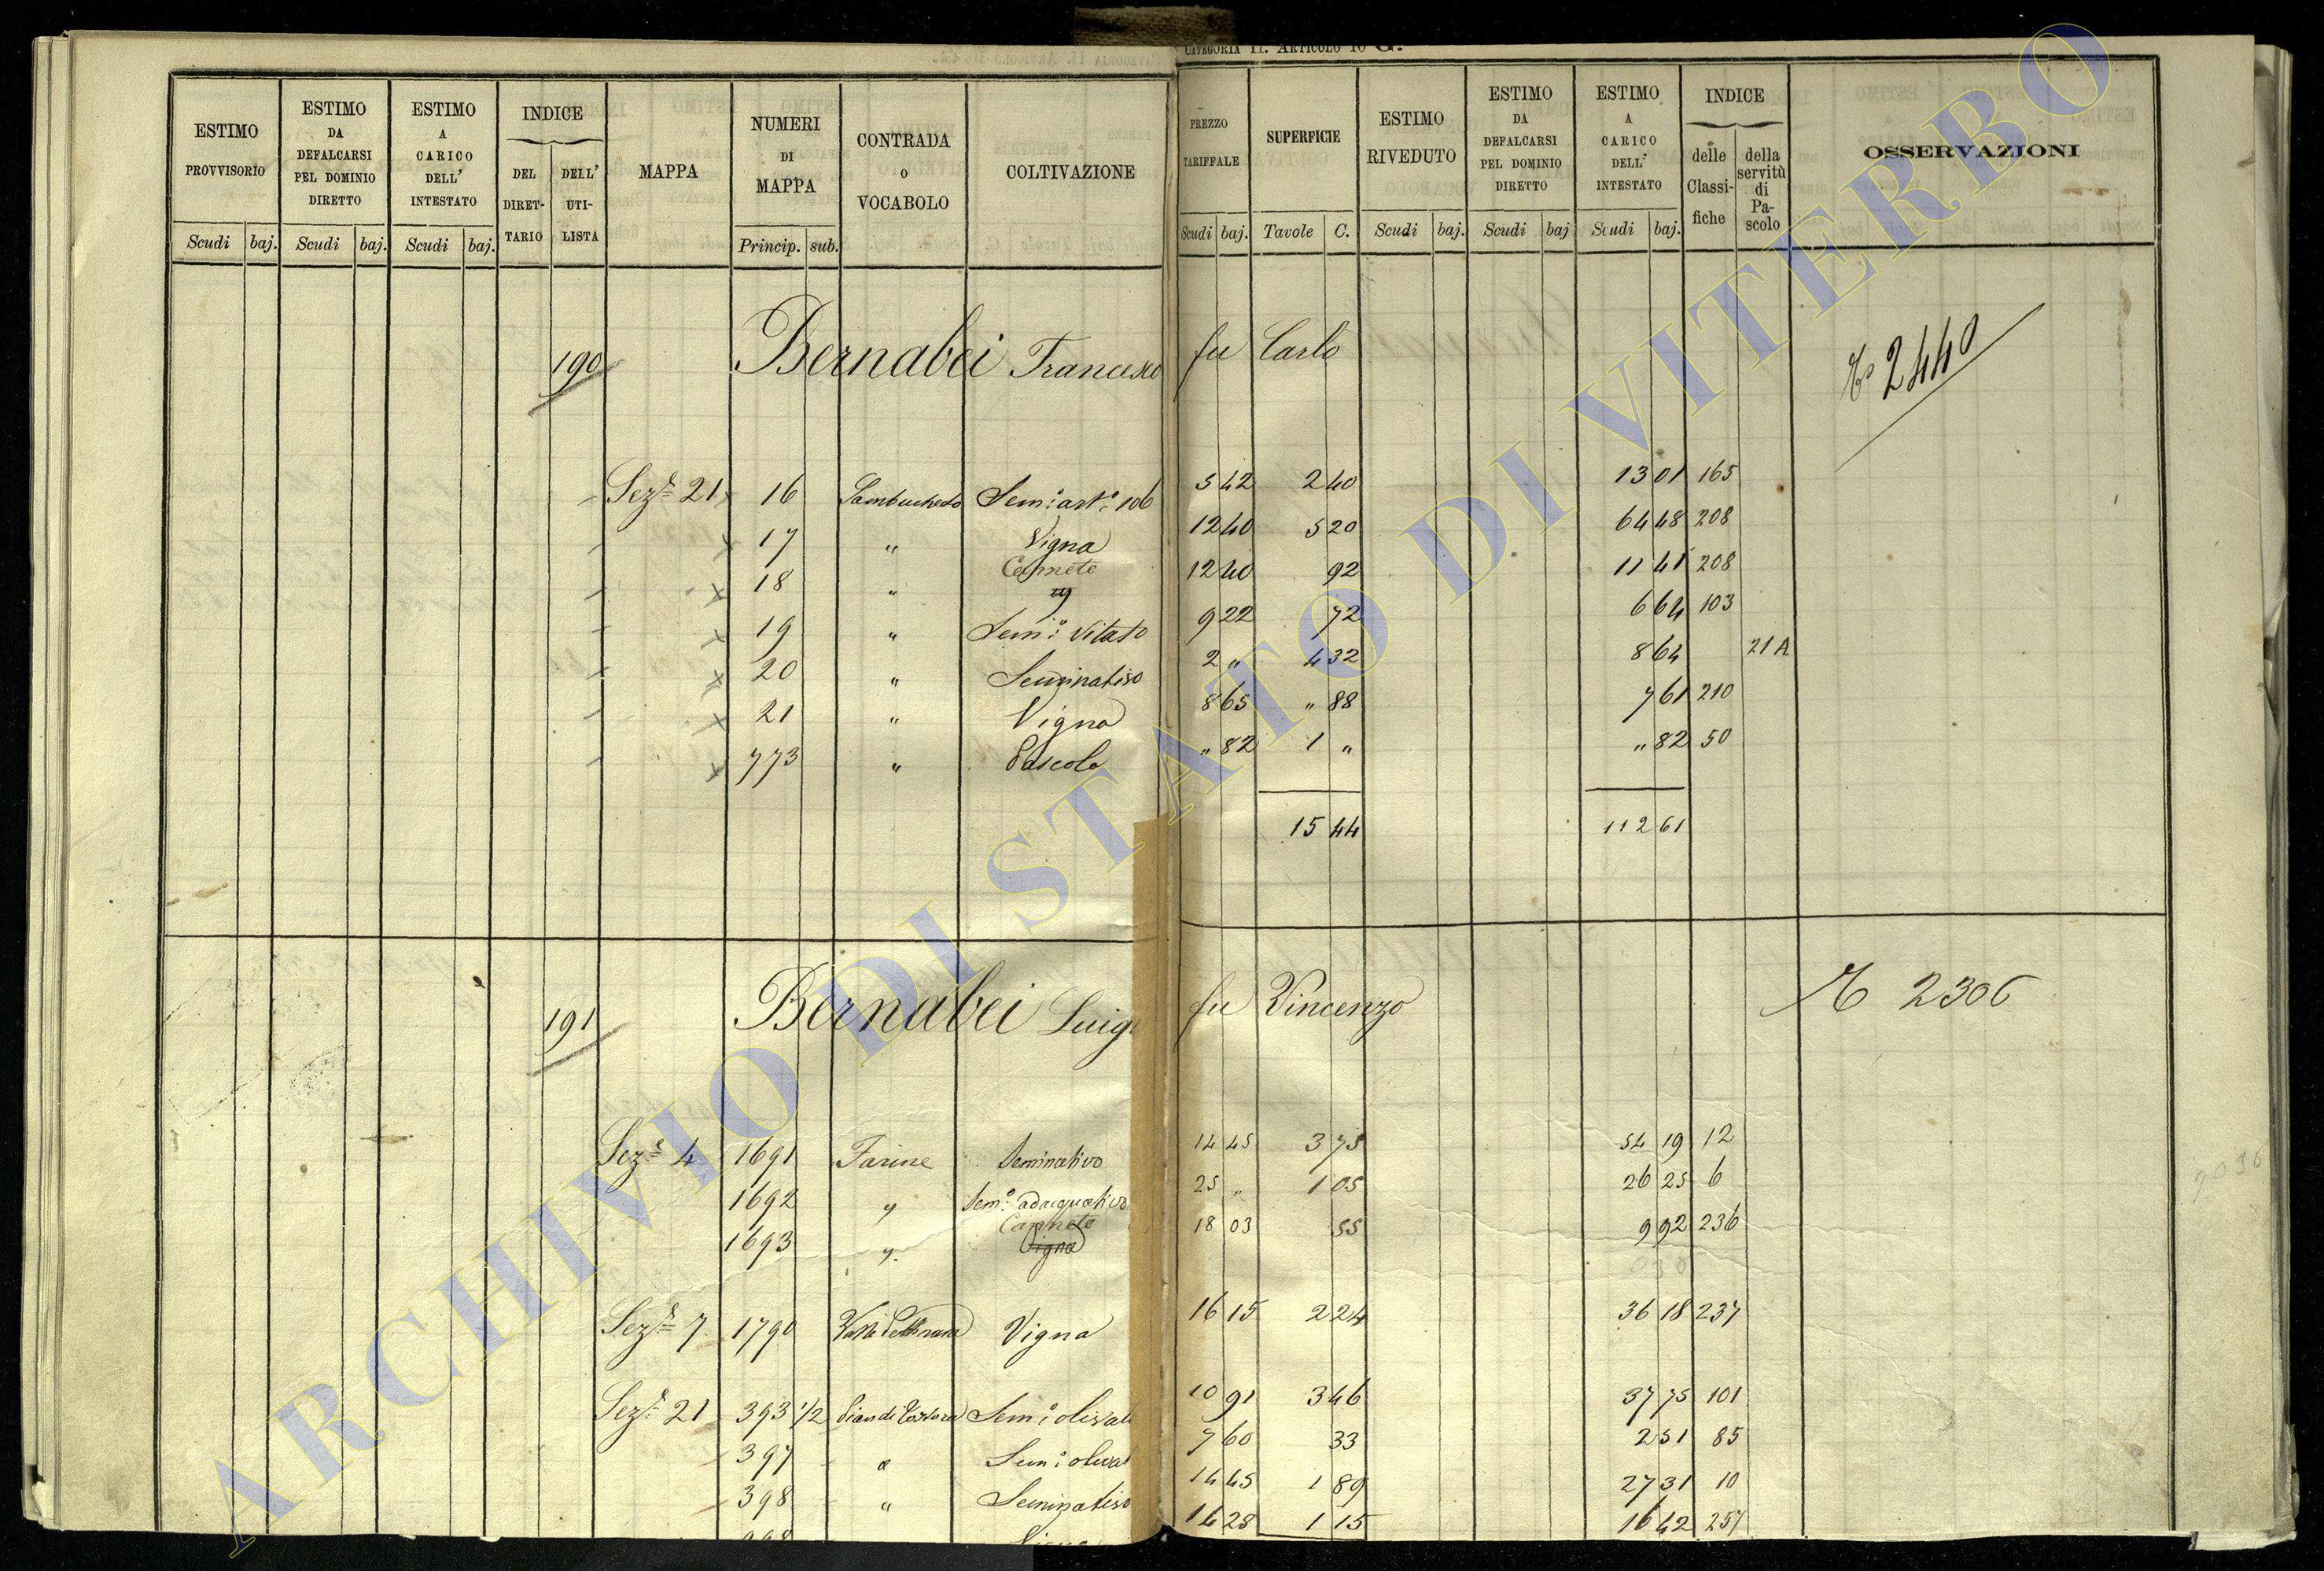 CATEGORIA II. ARTICOLO 10 G.
ESTIMO PROVVISORIO
Scudi baj.
ESTIMO DA DEFALCARSI PEL DOMINIO DIRETTO
Scudi baj.
ESTIMO A CARICO DELL' INTESTATO
Scudi baj.
INDICE
DEL DIRET-TARIO
DELL' UTI-LISTA
MAPPA
NUMERI DI MAPPA
Princip. sub.
CONTRADA O VOCABOLO
COLTIVAZIONE
PREZZO TARIFFALE
Scudi baj.
SUPERFICIE
Tavole C.
ESTIMO RIVEDUTO
Scudi baj.
ESTIMO DA DEFALCARSI PEL DOMINIO DIRETTO
Scudi baj
ESTIMO A CARICO DELL' INTESTATO
Scudi baj.
INDICE
delle Classi-fiche
della servitù di Pa-scolo
OSSERVAZIONI
190 Bernabei Francesco fu Carlo 2440
Sez.e 21 16 Sambucheto Sem:o art.o 106 5 42 2 40 13 01 165
17 " Vigna 12 40 5 20 64 48 208
Canneto
18 " 12 40 92 11 41 208
19 " Sem:o Vitato 9 22 72 6 64 103
20 " Seminativo 2 " 4 32 8 64 21 A
21 " Vigna 8 65 " 88 7 61 210
773 " Pascolo " 82 1 " " 82 50
15 44 112 61
191 Bernabei Luigi fu Vincenzo 2306
Sez.e 4 1691 Farine Seminativo 14 45 3 75 54 19 12
1692 " Sem:o adacquativo 25 " 1 05 26 25 6
Canneto
1693 " Vigna 18 03 55 9 92 236
Sez.e 7 1790 Vigna 16 15 2 24 36 18 237
Sez.e 21 393 1/2 Pian di Sem:o olivato 10 91 3 46 37 75 101
397 " Sem:o olivat 7 60 33 2 51 85
398 " Seminativo 14 45 1 89 27 31 10
14 28 1 15 16 42 257
9036
ARCHIVIO DI STATO DI VITERBO